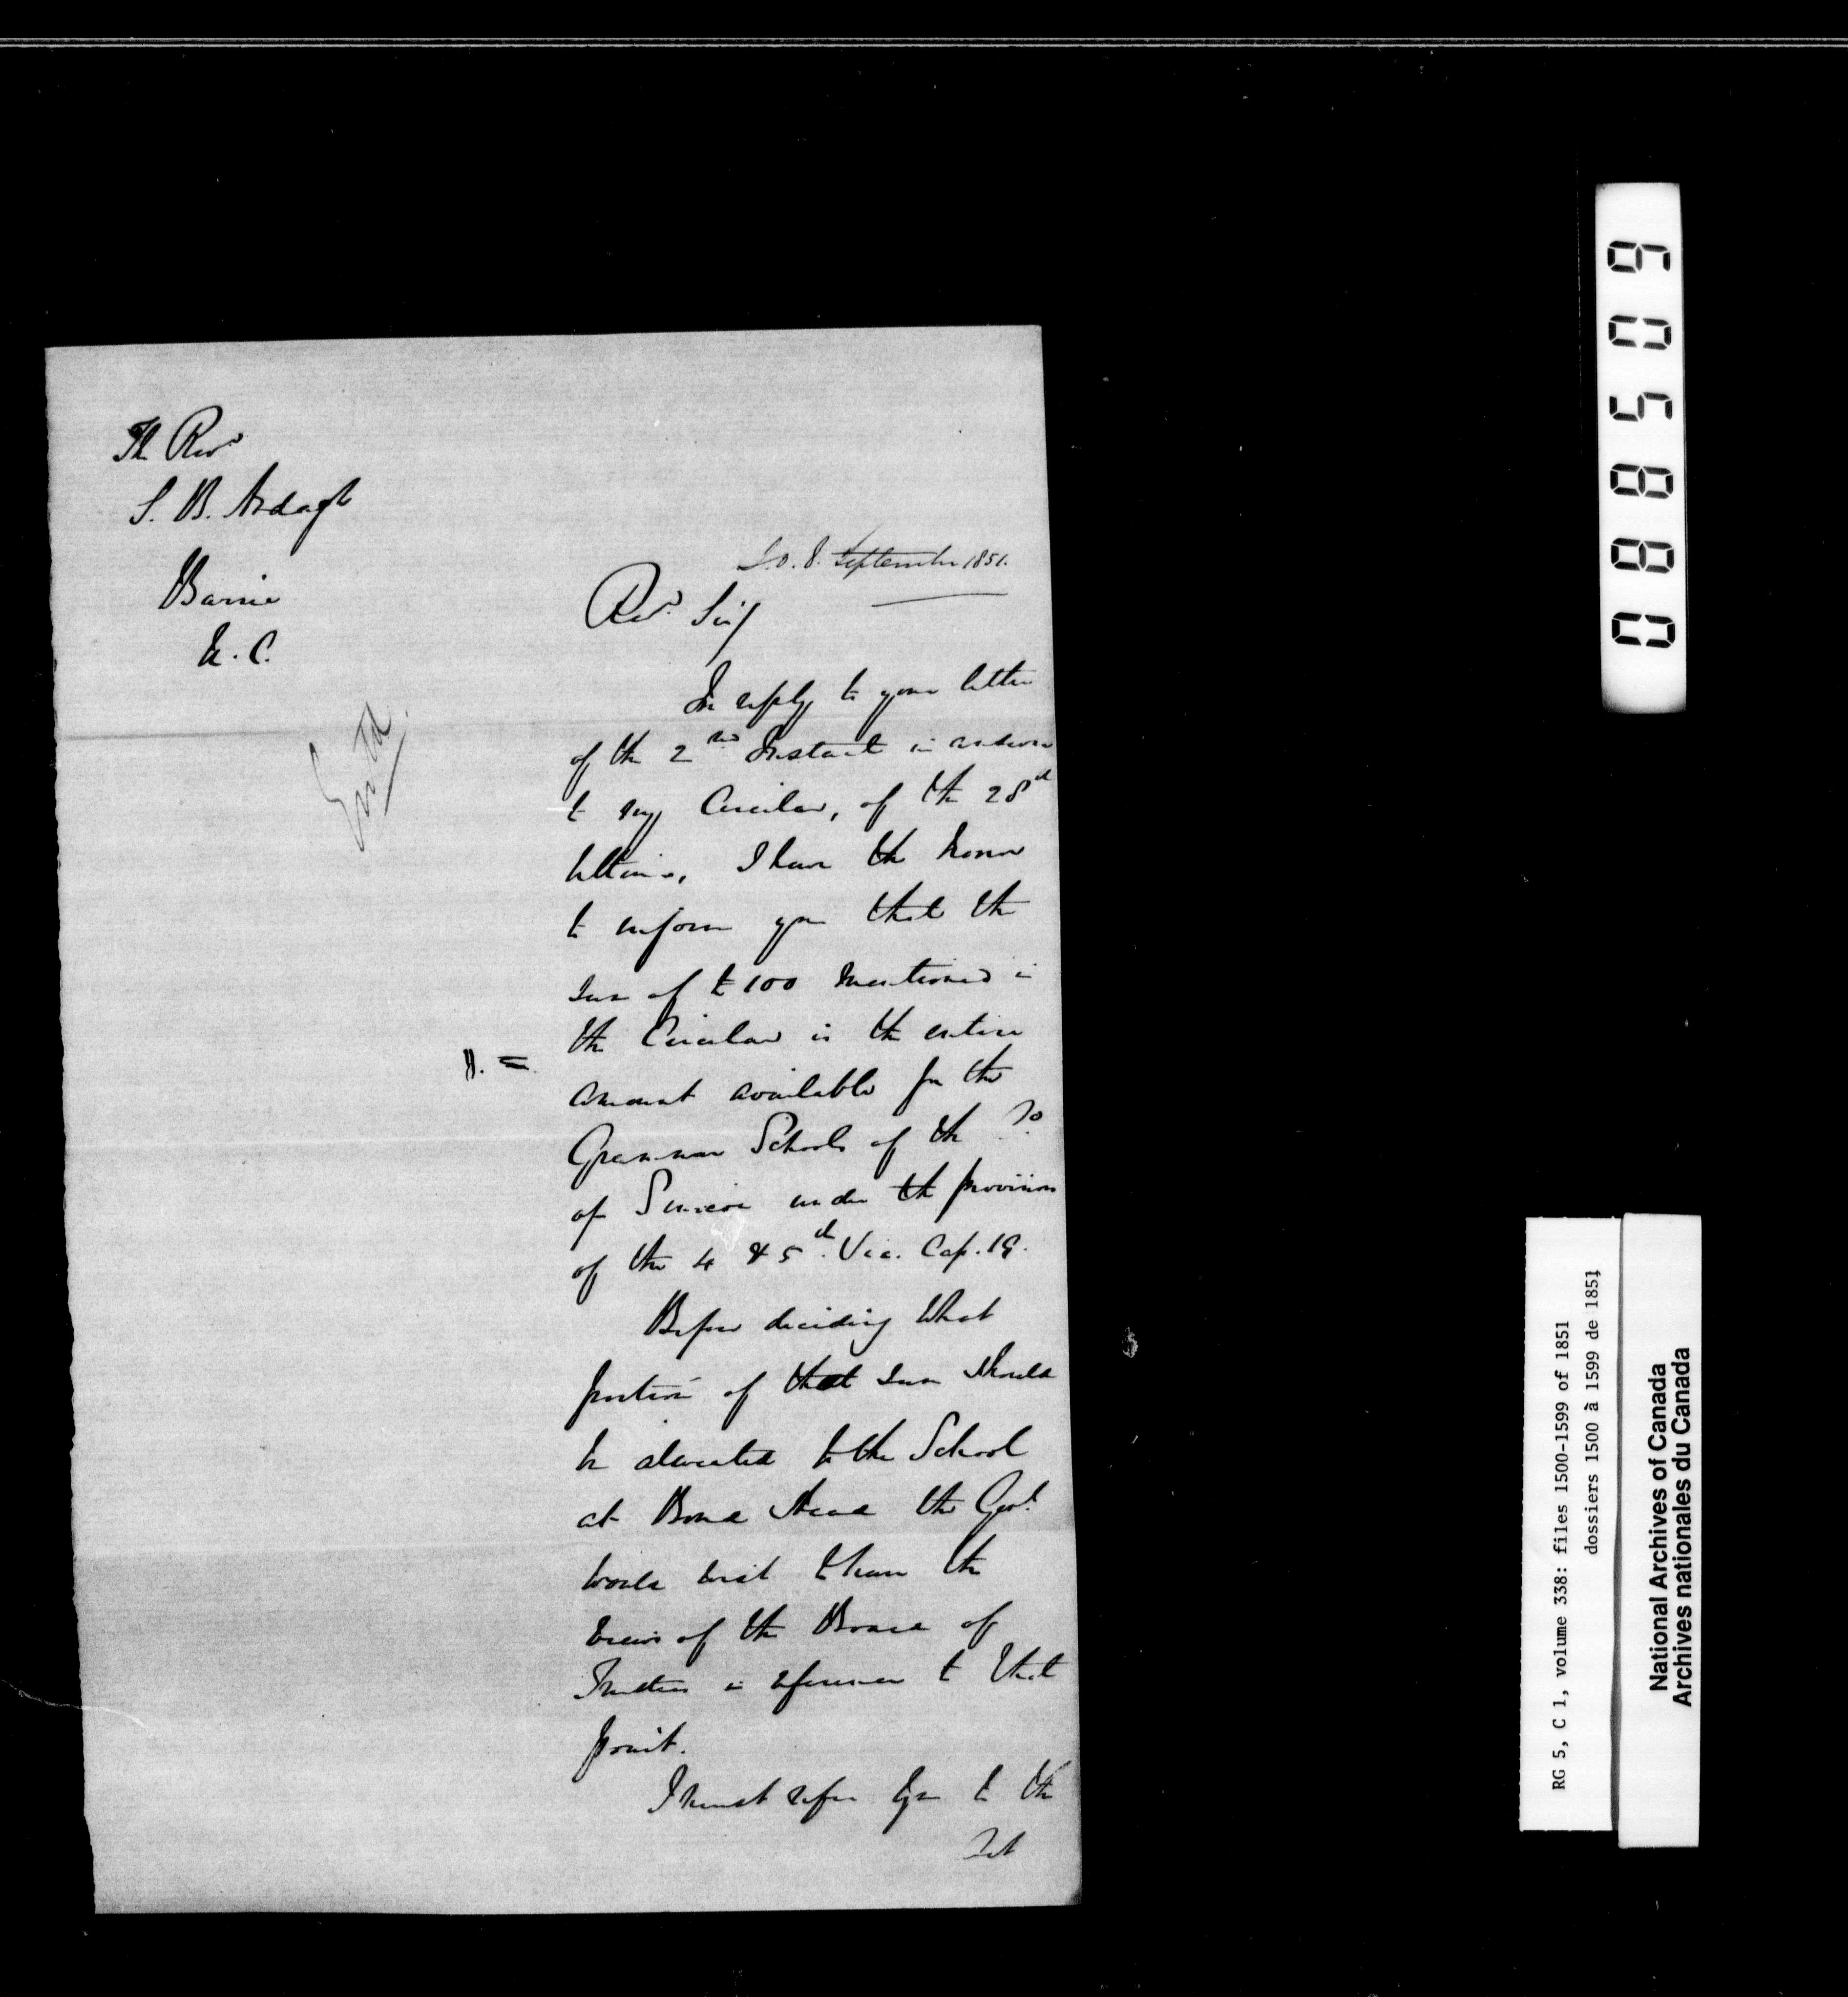 The Revd
S. B. Ardagh
Barrie
U. C.
Entd.
S.O. 8. September 1851.
Revd Sir/
In reply to your letter
of the 2nd Instant in answer
to my Circular, of the 28th
Ultimo, I have the honor
to inform you that the
sum of £100 mentioned in
the Circular is the entire
amount available for the
Grammar Schools of the Co
of Simcoe under the provisions
of the 4 & 5th Vic. Cap. 19.
Before deciding what
portion of that sum should
be alocated to the School
at Bond Head the Govt
would wish to have the
views of the Board of
Trustees in reference to that
point.
I must refer you to the
Act
088509
RG 5, C 1, volume 338: files 1500-1599 of 1851
dossiers 1500 à 1599 de 1851
National Archives of Canada
Archives nationales du Canada